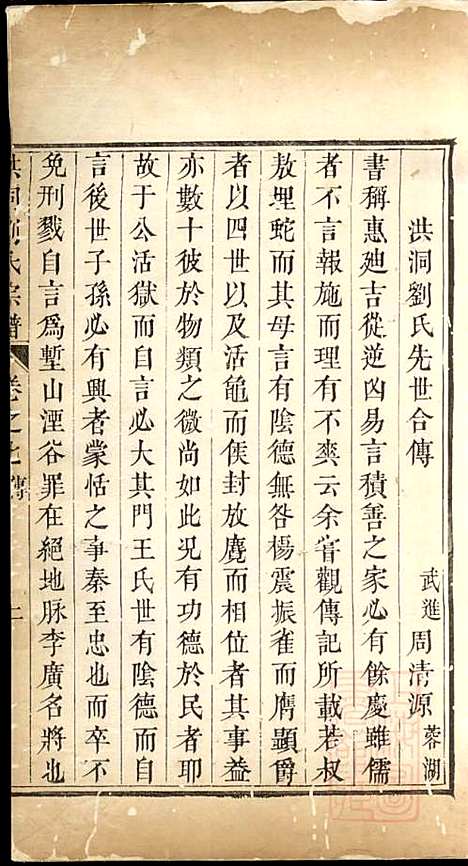 洪洞劉氏先世合傳 武進周清源蓉湖
書稱惠廸吉從逆凶易言積善之家必有餘慶雖儒
者不言報施而理有不爽云余嘗觀傳記所載若叔
敖埋蛇而其母言有陰德無咎楊震振雀而膺顯爵
者以四世以及活龜而侯封放麑而相位者其事益
亦數十彼於物類之微尚如此況有功德於民者耶
故于公活獄而自言必大其門王氏世有陰德而自
言後世子孫必有興者蒙恬之事秦至忠也而卒不
免刑戮自言爲塹山湮谷罪在絕地脉李廣名將也
洪洞劉氏宗譜 卷之七 傳 一